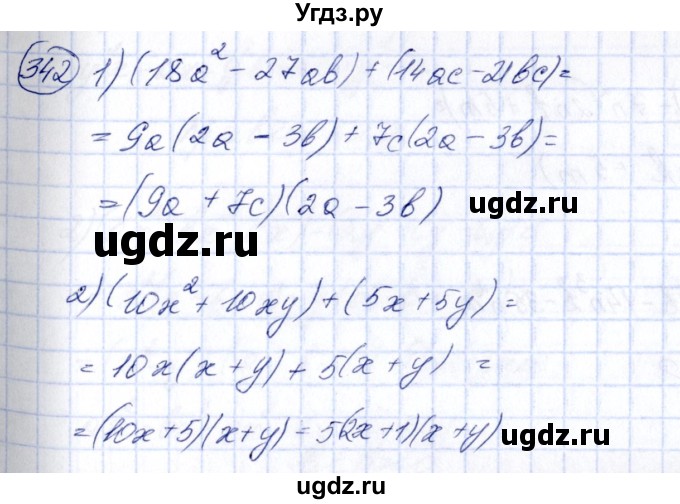 Угдз.ру
342 1) (18a² - 27ab) + (14ac - 21bc) =
= 9a(2a - 3b) + 7c(2a - 3b) =
= (9a + 7c)(2a - 3b)
ugdz.ru
ugdz.ru
2) (10x² + 10xy) + (5x + 5y) =
= 10x(x + y) + 5(x + y) =
= (10x + 5)(x + y) = 5(2x + 1)(x + y)
ugdz.ru
ugdz.ru